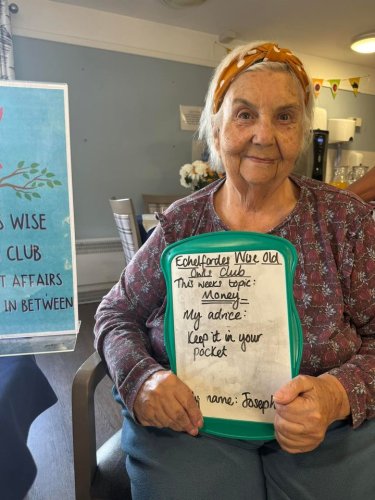 S WISE
CLUB
T AFFAIRS
IN BETWEEN
Echelforder Wise Old
Owls Club
This weeks topic:
Money
My advice:
Keep it in your
pocket
name: Joseph